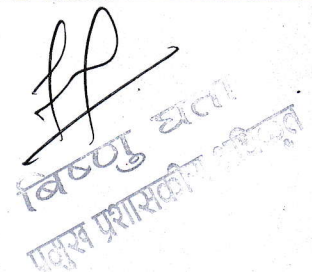 बिष्णु घता
प्रमुख प्रशासकीय अधिकृत